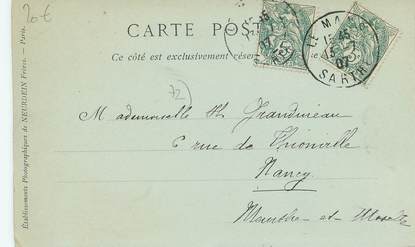 20€
CARTE POS
Ce côté est exclusivement réser
LE MANS
15 45
13 - 7
07
SARTHE
72
Mademoiselle
6 rue de Thionville
Nancy
Meurthe-et-Moselle
Établissements Photographiques de NEURDEIN Frères. — Paris.